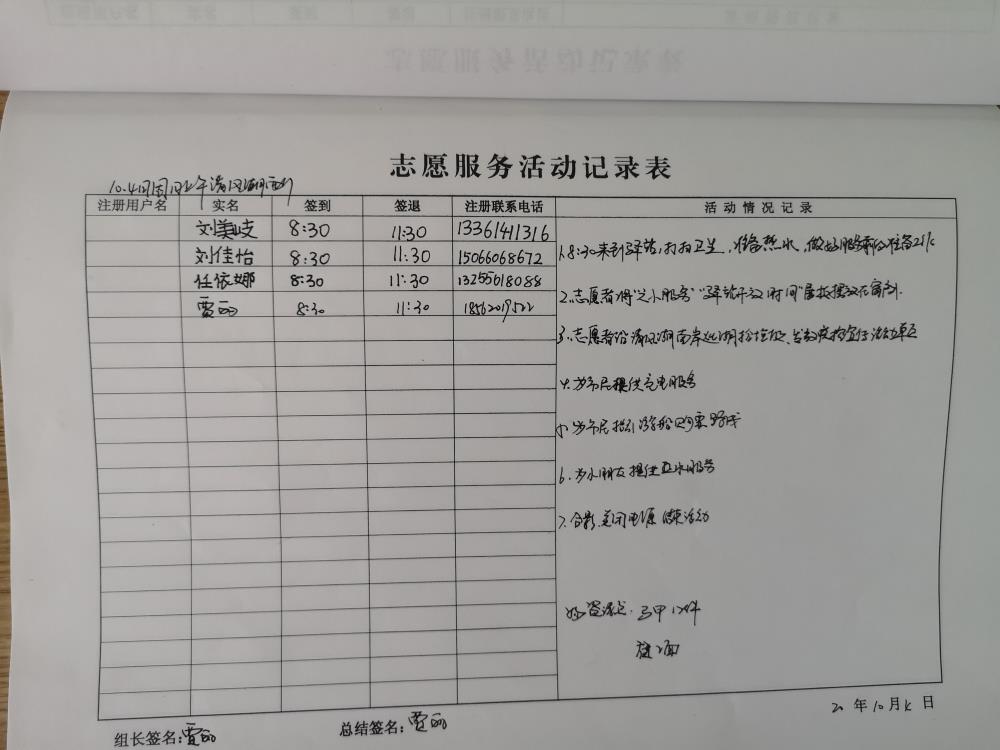 志愿服务活动记录表
注册用户名 实名 签到 签退 注册联系电话 活动情况记录
刘美岐 8:30 11:30 13361411316
刘佳怡 8:30 11:30 15066068672
任依娜 8:30 11:30 13255618088
贾丽 8:30 11:30 18562019522
1.8:30来到驿站,打扫卫生,准备热水,做好服务前的准备工作
2.志愿者将"之小服务""驿站开放时间"展板摆放在窗外.
3.志愿者沿清风湖南岸巡湖捡垃圾、发放疫情宣传活动单页
4.为市民提供充电服务
5.为市民指引游船购票路线
6.为小朋友提供 服务
7.合影,关闭电源 结束活动
20 年 10 月 4 日
组长签名:贾丽 总结签名:贾丽